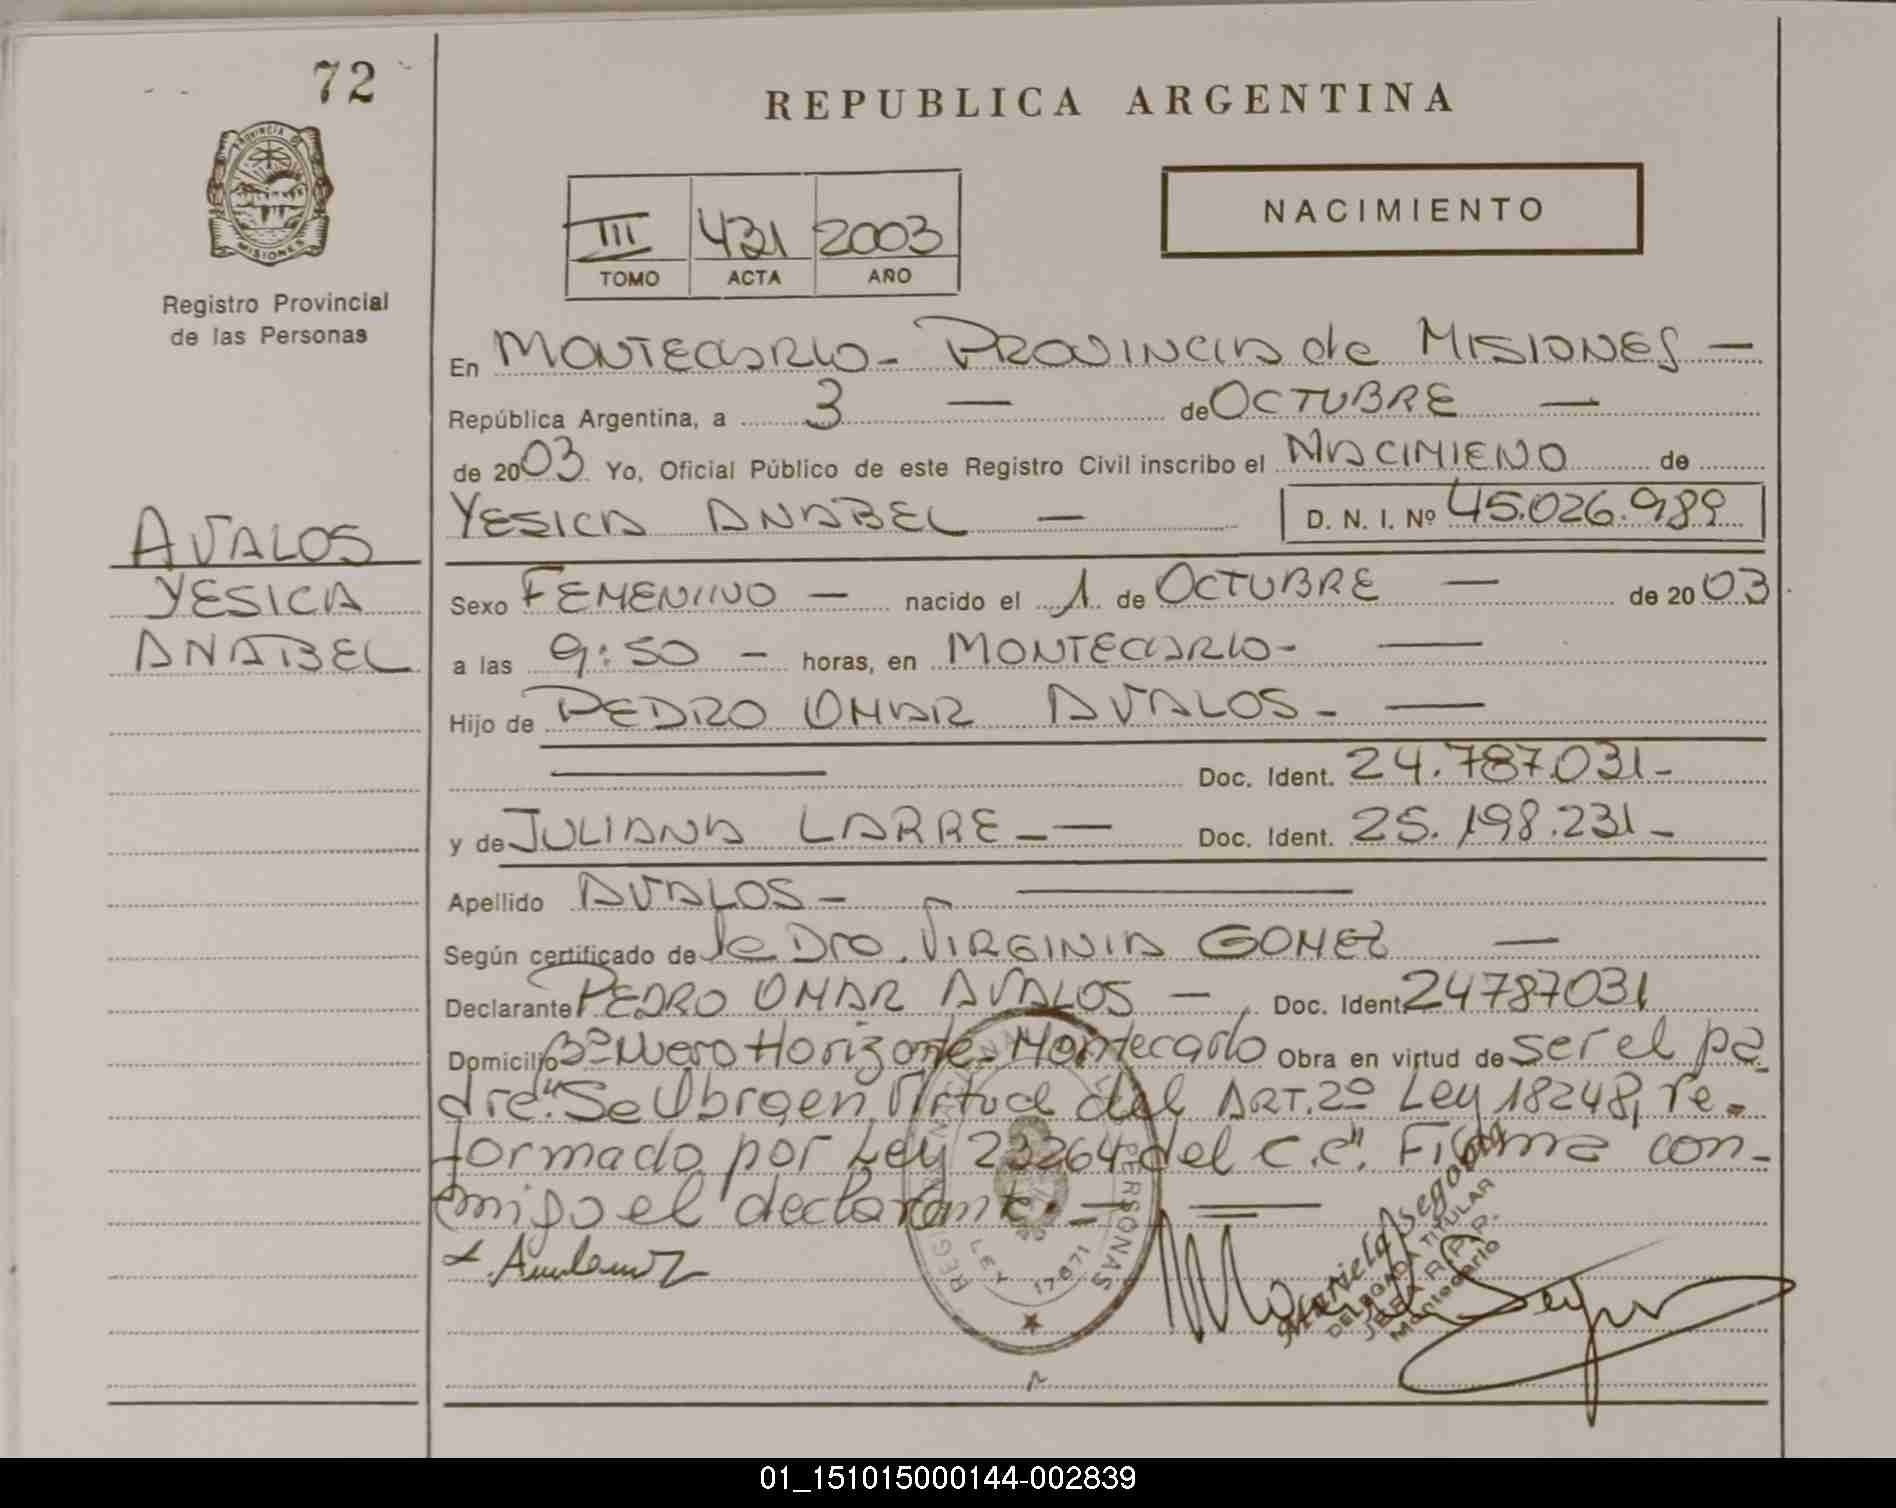 72
REPUBLICA ARGENTINA
PROVINCIA DE
MISIONES
Registro Provincial
de las Personas
NACIMIENTO
III 421 2003
TOMO ACTA AÑO
En MONTECARLO - PROVINCIA de MISIONES —
República Argentina, a 3 — de OCTUBRE —
de 2003 Yo, Oficial Público de este Registro Civil inscribo el NACIMIENO de
YESICA ANABEL — D. N. I. Nº 45.026.989
AVALOS
YESICA
ANABEL
Sexo FEMENINO — nacido el 1 de OCTUBRE — de 2003
a las 9:50 — horas, en MONTECARLO - —
Hijo de PEDRO OMAR AVALOS - —
— Doc. Ident. 24.787.031-
y de JULIANA LARRE - — Doc. Ident. 25.198.231-
Apellido AVALOS - —
Según certificado de la Dra. VIRGINIA GOMEZ —
Declarante PEDRO OMAR AVALOS — Doc. Ident. 24787031
Domicilio Bº Nuevo Horizonte - Montecarlo Obra en virtud de ser el pa
dre. "Se Obra en Virtud del ART. 2º Ley 18248, re-
formado por Ley 23264 del C.C". Firma con-
migo el declarante. —
REGISTRO PERSONAS
LEY 17671
Mariela Segovia
DELEGADA TITULAR
R.P.P.
Montecarlo
01_151015000144-002839